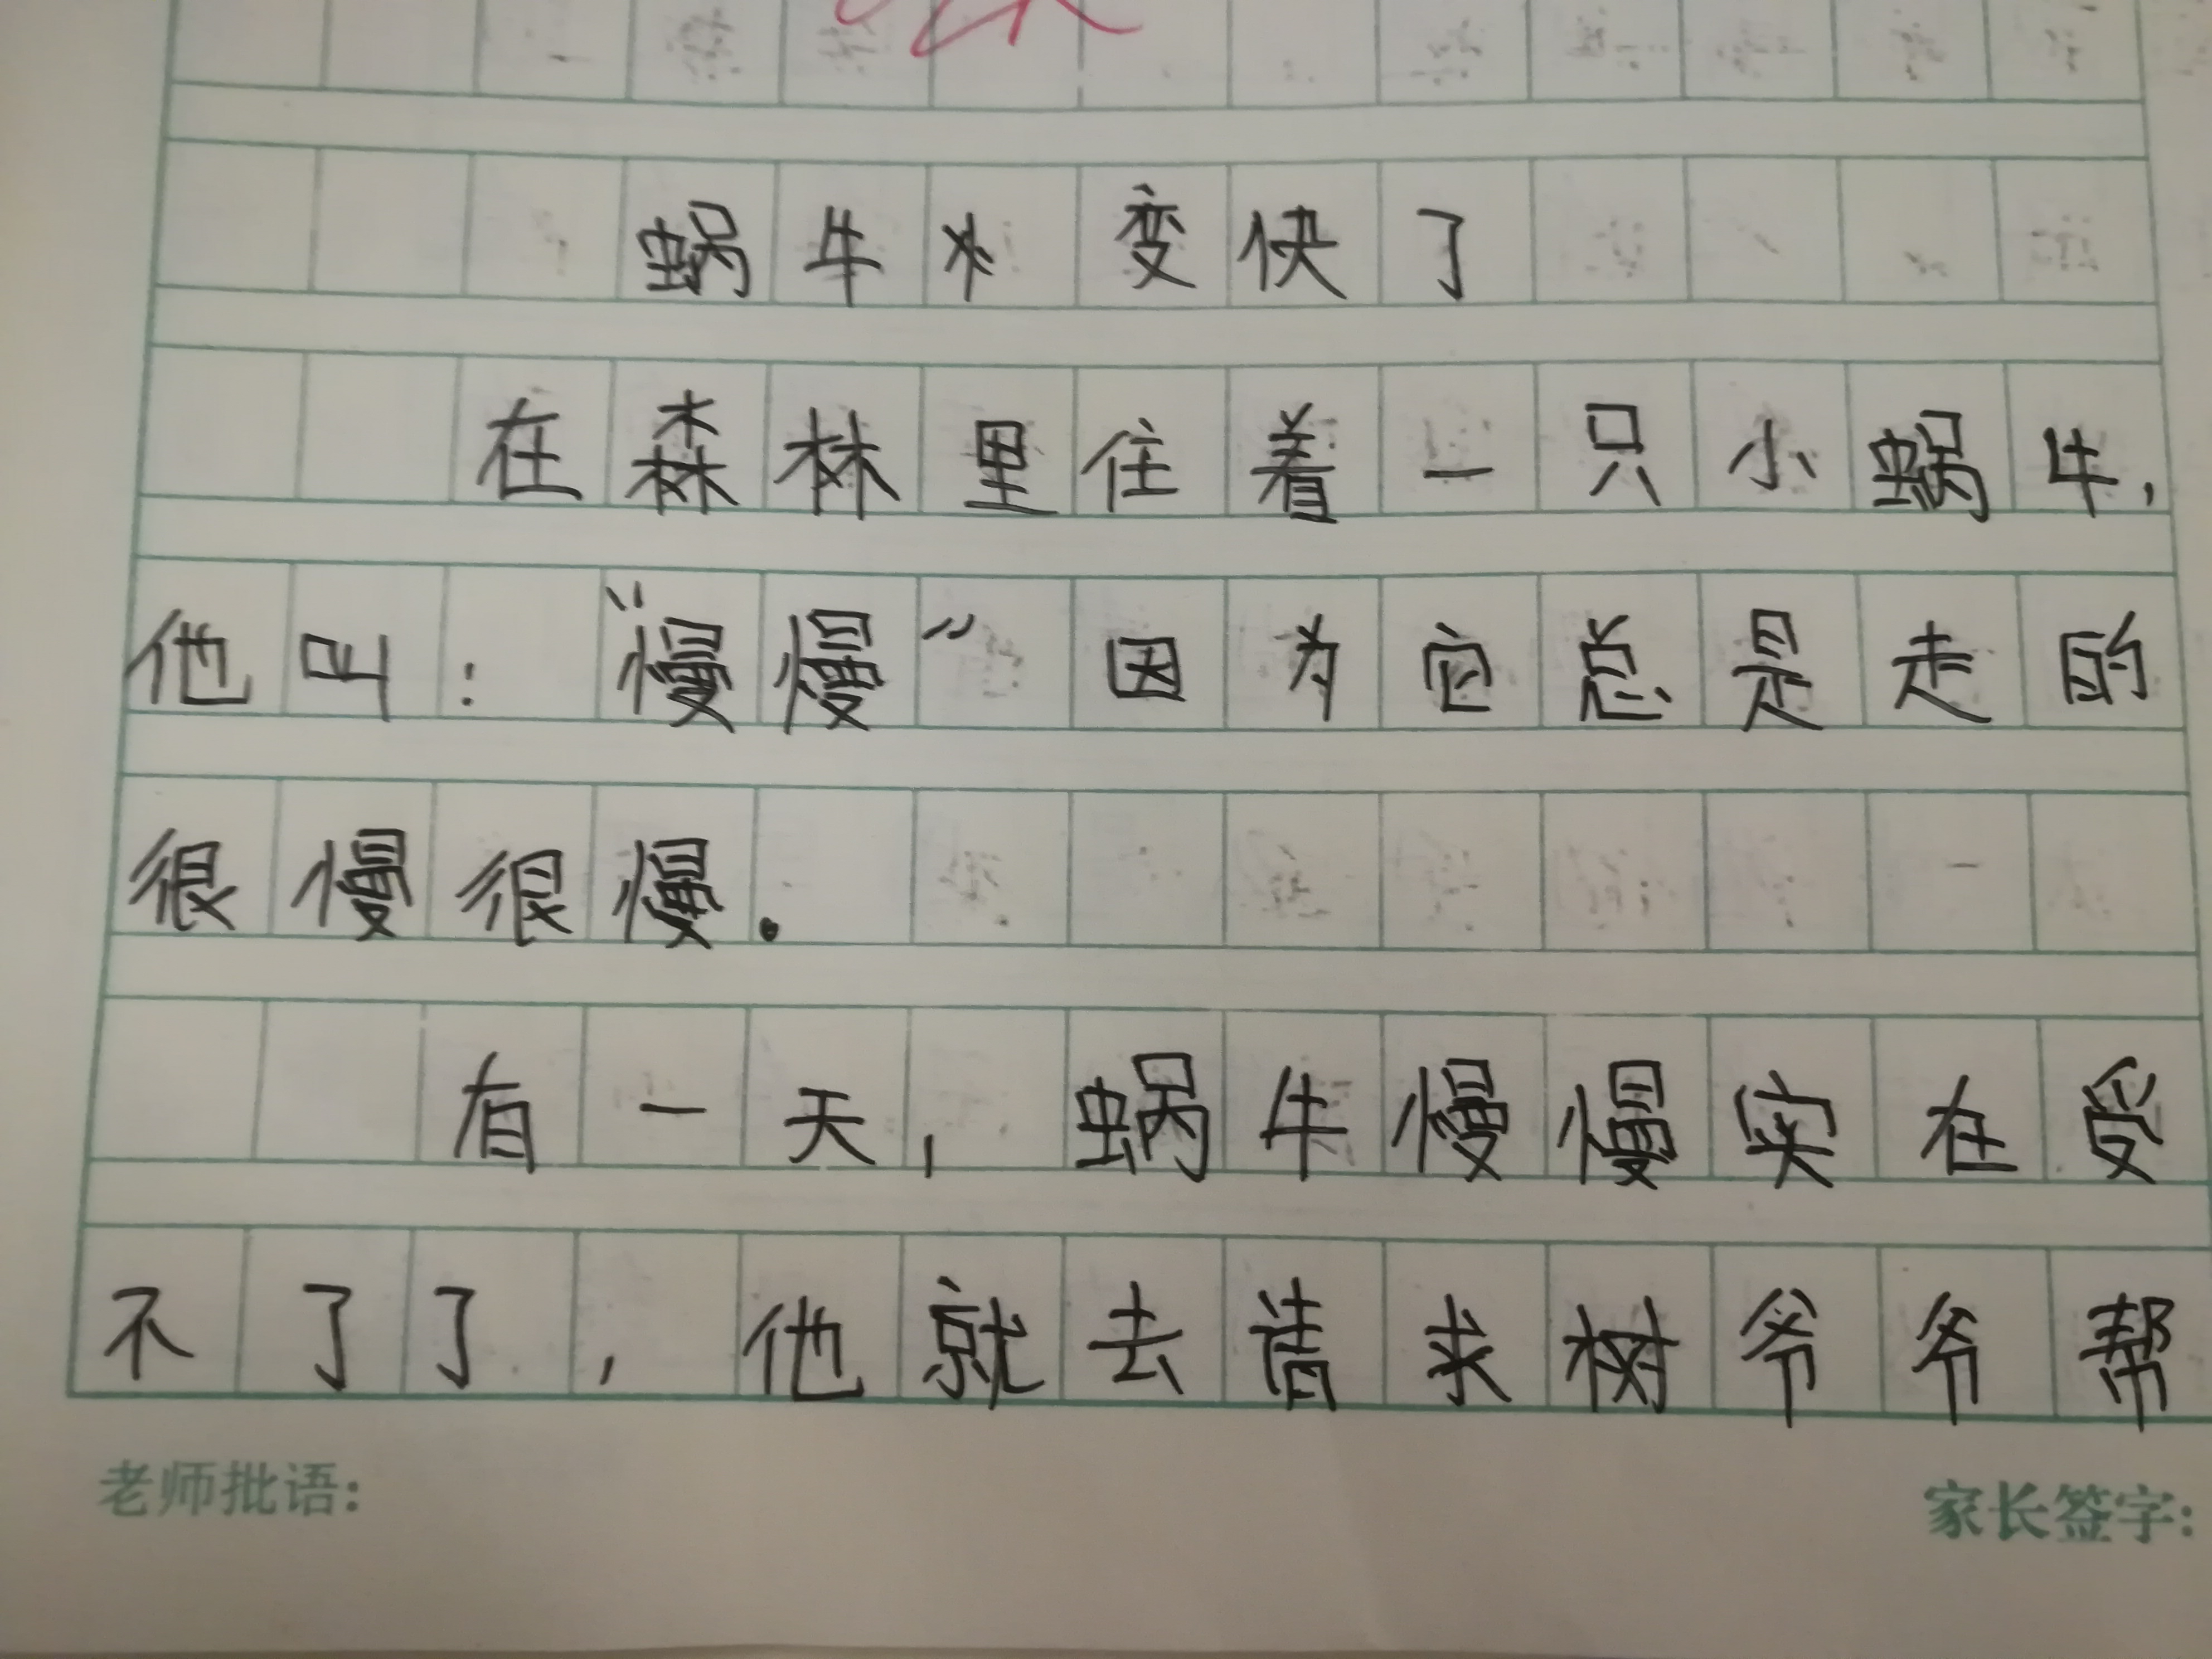 蜗牛变快了
在森林里住着一只小蜗牛，
他叫：“慢慢”因为它总是走的
很慢很慢。
有一天，蜗牛慢慢实在受
不了了，他就去请求树爷爷帮
老师批语：
家长签字：